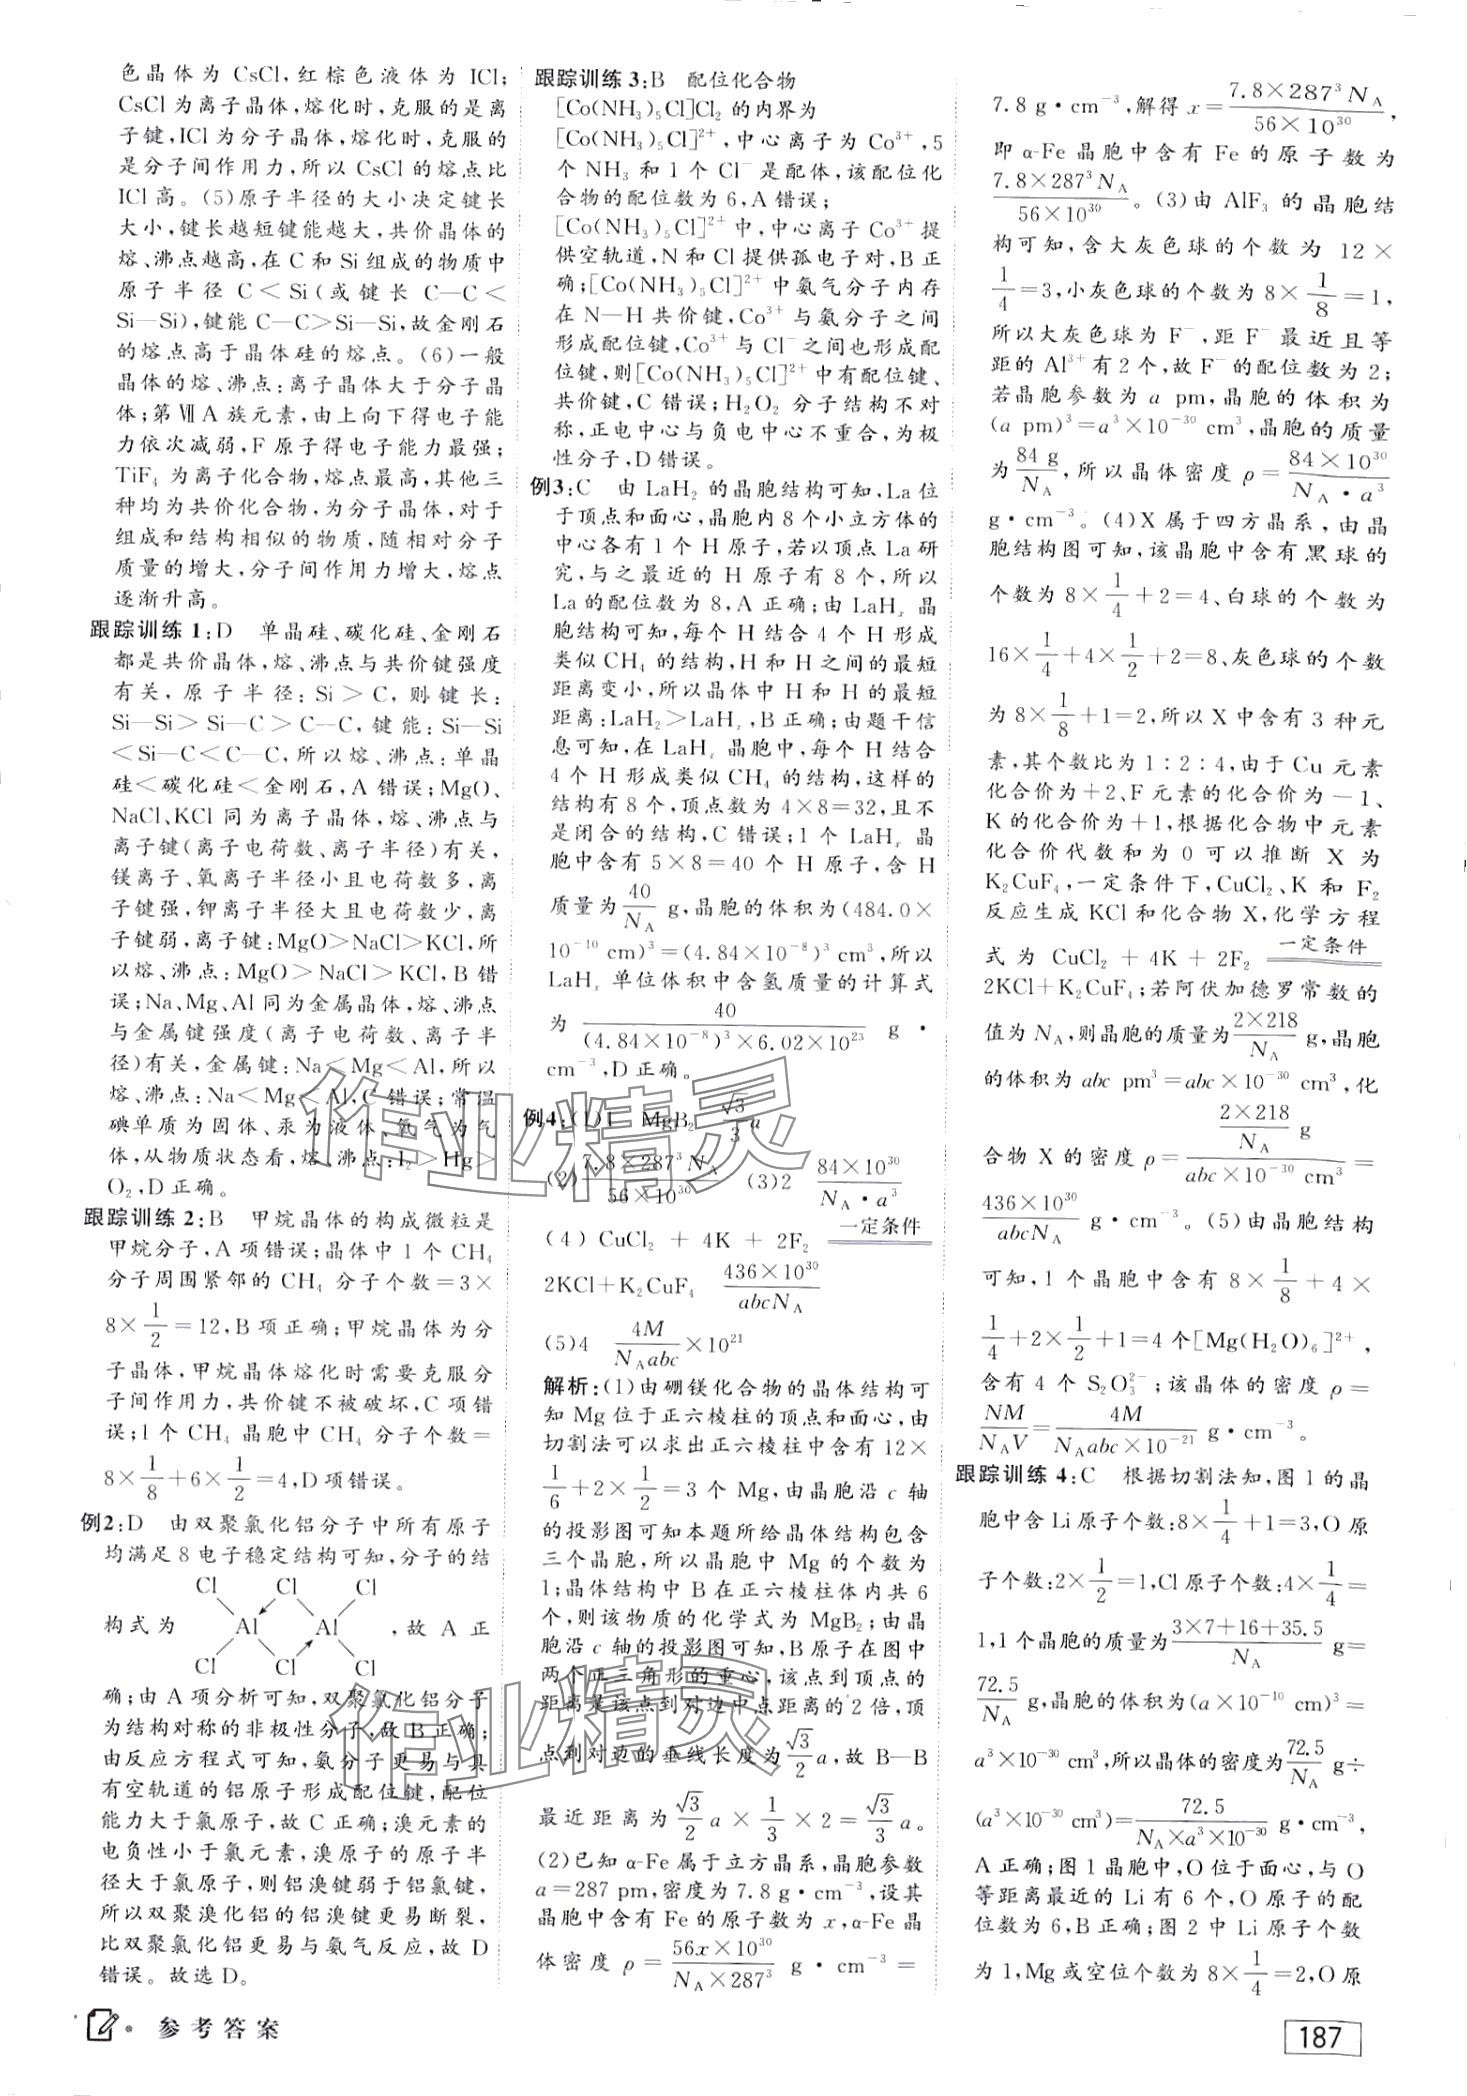 色晶体为 CsCl,红棕色液体为 ICl;
CsCl 为离子晶体,熔化时,克服的是离
子键,ICl 为分子晶体,熔化时,克服的
是分子间作用力,所以 CsCl 的熔点比
ICl 高。(5)原子半径的大小决定键长
大小,键长越短键能越大,共价晶体的
熔、沸点越高,在 C 和 Si 组成的物质中
原子半径 C<Si(或键长 C—C<
Si—Si),键能 C—C>Si—Si,故金刚石
的熔点高于晶体硅的熔点。(6)一般
晶体的熔、沸点:离子晶体大于分子晶
体;第ⅦA族元素,由上向下得电子能
力依次减弱,F 原子得电子能力最强;
TiF₄ 为离子化合物,熔点最高,其他三
种均为共价化合物,为分子晶体,对于
组成和结构相似的物质,随相对分子
质量的增大,分子间作用力增大,熔点
逐渐升高。
跟踪训练1:D 单晶硅、碳化硅、金刚石
都是共价晶体,熔、沸点与共价键强度
有关,原子半径:Si>C,则键长:
Si—Si>Si—C>C—C,键能:Si—Si
<Si—C<C—C,所以熔、沸点:单晶
硅<碳化硅<金刚石,A 错误;MgO、
NaCl、KCl 同为离子晶体,熔、沸点与
离子键(离子电荷数、离子半径)有关,
镁离子、氧离子半径小且电荷数多,离
子键强,钾离子半径大且电荷数少,离
子键弱,离子键:MgO>NaCl>KCl,所
以熔、沸点:MgO>NaCl>KCl,B 错
误;Na、Mg、Al 同为金属晶体,熔、沸点
与金属键强度(离子电荷数、离子半
径)有关,金属键:Na<Mg<Al,所以
熔、沸点:Na<Mg<Al,C 错误;常温
碘单质为固体、汞为液体、氧气为气
体,从物质状态看,熔、沸点:I₂>Hg>
O₂,D 正确。
跟踪训练2:B 甲烷晶体的构成微粒是
甲烷分子,A 项错误;晶体中 1 个 CH₄
分子周围紧邻的 CH₄ 分子个数=3×
8×1/2=12,B 项正确;甲烷晶体为分
子晶体,甲烷晶体熔化时需要克服分
子间作用力,共价键不被破坏,C 项错
误;1 个 CH₄ 晶胞中 CH₄ 分子个数=
8×1/8+6×1/2=4,D 项错误。
例2:D 由双聚氯化铝分子中所有原子
均满足 8 电子稳定结构可知,分子的结
Cl Cl Cl
构式为 Al Al ,故 A 正
Cl Cl Cl
确;由 A 项分析可知,双聚氯化铝分子
为结构对称的非极性分子,故 B 正确;
由反应方程式可知,氨分子更易与具
有空轨道的铝原子形成配位键,配位
能力大于氯原子,故 C 正确;溴元素的
电负性小于氯元素,溴原子的原子半
径大于氯原子,则铝溴键弱于铝氯键,
所以双聚溴化铝的铝溴键更易断裂,
比双聚氯化铝更易与氨气反应,故 D
错误。故选 D。
跟踪训练3:B 配位化合物
[Co(NH₃)₅Cl]Cl₂ 的内界为
[Co(NH₃)₅Cl]²⁺,中心离子为 Co³⁺,5
个 NH₃ 和 1 个 Cl⁻ 是配体,该配位化
合物的配位数为 6,A 错误;
[Co(NH₃)₅Cl]²⁺中,中心离子 Co³⁺提
供空轨道,N 和 Cl 提供孤电子对,B 正
确;[Co(NH₃)₅Cl]²⁺中氨气分子内存
在 N—H 共价键,Co³⁺与氨分子之间
形成配位键,Co³⁺与 Cl⁻之间也形成配
位键,则[Co(NH₃)₅Cl]²⁺中有配位键、
共价键,C 错误;H₂O₂ 分子结构不对
称,正电中心与负电中心不重合,为极
性分子,D 错误。
例3:C 由 LaH₂ 的晶胞结构可知,La 位
于顶点和面心,晶胞内 8 个小立方体的
中心各有 1 个 H 原子,若以顶点 La 研
究,与之最近的 H 原子有 8 个,所以
La 的配位数为 8,A 正确;由 LaHₓ 晶
胞结构可知,每个 H 结合 4 个 H 形成
类似 CH₄ 的结构,H 和 H 之间的最短
距离变小,所以晶体中 H 和 H 的最短
距离:LaH₂>LaHₓ,B 正确;由题干信
息可知,在 LaHₓ 晶胞中,每个 H 结合
4 个 H 形成类似 CH₄ 的结构,这样的
结构有 8 个,顶点数为 4×8=32,且不
是闭合的结构,C 错误;1 个 LaHₓ 晶
胞中含有 5×8=40 个 H 原子,含 H
质量为 40/N_A g,晶胞的体积为(484.0×
10⁻¹⁰ cm)³=(4.84×10⁻⁸)³ cm³,所以
LaHₓ 单位体积中含氢质量的计算式
为 40/((4.84×10⁻⁸)³×6.02×10²³) g·
cm⁻³,D 正确。
例4:(1)1 MgB₂ √3/3 a
(2)7.8×287³N_A/(56×10³⁰) (3)2 84×10³⁰/(N_A·a³)
(4)CuCl₂+4K+2F₂ 一定条件
2KCl+K₂CuF₄ 436×10³⁰/(abcN_A)
(5)4 4M/(N_A abc)×10²¹
解析:(1)由硼镁化合物的晶体结构可
知 Mg 位于正六棱柱的顶点和面心,由
切割法可以求出正六棱柱中含有 12×
1/6+2×1/2=3 个 Mg,由晶胞沿 c 轴
的投影图可知本题所给晶体结构包含
三个晶胞,所以晶胞中 Mg 的个数为
1;晶体结构中 B 在正六棱柱体内共 6
个,则该物质的化学式为 MgB₂;由晶
胞沿 c 轴的投影图可知,B 原子在图中
两个正三角形的重心,该点到顶点的
距离是该点到对边中点距离的 2 倍,顶
点到对边的垂线长度为 √3/2 a,故 B—B
最近距离为 √3/2 a×1/3×2=√3/3 a。
(2)已知 α-Fe 属于立方晶系,晶胞参数
a=287 pm,密度为 7.8 g·cm⁻³,设其
晶胞中含有 Fe 的原子数为 x,α-Fe 晶
体密度 ρ=56x×10³⁰/(N_A×287³) g·cm⁻³=
7.8 g·cm⁻³,解得 x=7.8×287³N_A/(56×10³⁰),
即 α-Fe 晶胞中含有 Fe 的原子数为
7.8×287³N_A/(56×10³⁰)。(3)由 AlF₃ 的晶胞结
构可知,含大灰色球的个数为 12×
1/4=3,小灰色球的个数为 8×1/8=1,
所以大灰色球为 F⁻,距 F⁻ 最近且等
距的 Al³⁺有 2 个,故 F⁻的配位数为 2;
若晶胞参数为 a pm,晶胞的体积为
(a pm)³=a³×10⁻³⁰ cm³,晶胞的质量
为 84 g/N_A,所以晶体密度 ρ=84×10³⁰/(N_A·a³)
g·cm⁻³。(4)X 属于四方晶系,由晶
胞结构图可知,该晶胞中含有黑球的
个数为 8×1/4+2=4、白球的个数为
16×1/4+4×1/2+2=8、灰色球的个数
为 8×1/8+1=2,所以 X 中含有 3 种元
素,其个数比为 1:2:4,由于 Cu 元素
化合价为+2、F 元素的化合价为-1、
K 的化合价为+1,根据化合物中元素
化合价代数和为 0 可以推断 X 为
K₂CuF₄,一定条件下,CuCl₂、K 和 F₂
反应生成 KCl 和化合物 X,化学方程
式为 CuCl₂+4K+2F₂ 一定条件
2KCl+K₂CuF₄;若阿伏加德罗常数的
值为 N_A,则晶胞的质量为 2×218/N_A g,晶胞
的体积为 abc pm³=abc×10⁻³⁰ cm³,化
合物 X 的密度 ρ=(2×218/N_A g)/(abc×10⁻³⁰ cm³)=
436×10³⁰/(abcN_A) g·cm⁻³。(5)由晶胞结构
可知,1 个晶胞中含有 8×1/8+4×
1/4+2×1/2+1=4 个[Mg(H₂O)₆]²⁺,
含有 4 个 S₂O₃²⁻;该晶体的密度 ρ=
NM/(N_A V)=4M/(N_A abc×10⁻²¹) g·cm⁻³。
跟踪训练4:C 根据切割法知,图 1 的晶
胞中含 Li 原子个数:8×1/4+1=3,O 原
子个数:2×1/2=1,Cl 原子个数:4×1/4=
1,1 个晶胞的质量为 (3×7+16+35.5)/N_A g=
72.5/N_A g,晶胞的体积为(a×10⁻¹⁰ cm)³=
a³×10⁻³⁰ cm³,所以晶体的密度为 72.5/N_A g÷
(a³×10⁻³⁰ cm³)=72.5/(N_A×a³×10⁻³⁰) g·cm⁻³,
A 正确;图 1 晶胞中,O 位于面心,与 O
等距离最近的 Li 有 6 个,O 原子的配
位数为 6,B 正确;图 2 中 Li 原子个数
为 1,Mg 或空位个数为 8×1/4=2,O 原
参考答案
187
作业精灵
作业精灵